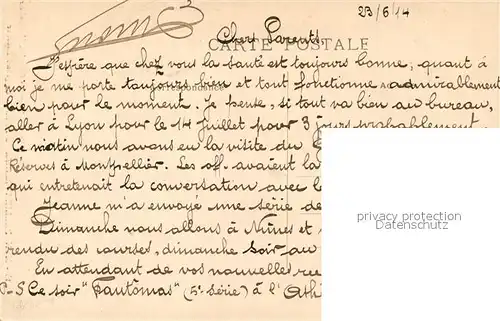 23/6/14
Chers Parents,
CARTE POSTALE
J'espère que chez vous la santé est toujours bonne; quant à
moi je me porte toujours bien et tout fonctionne admirablement
Correspondance
bien pour le moment. Je pense, si tout va bien au bureau,
aller à Lyon pour le 14 Juillet pour 3 jours probablement.
Ce matin nous avons eu la visite du
Réserves à Montpellier. Les off. avaient la
qui entretenait la conversation avec le
Jeanne m'a envoyé une série de
Dimanche nous allons à Nîmes et
rendu des courses, dimanche soir au
En attendant de vos nouvelles
P-S Ce soir "Fantômas" (5e série) à l'Ath
privacy protection
Datenschutz